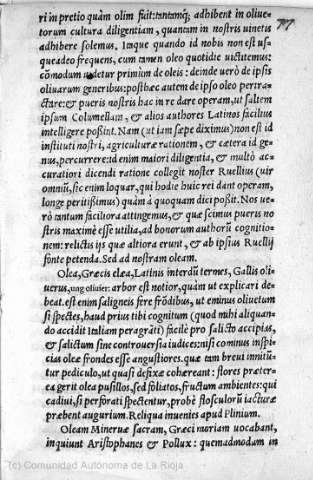 ri in pretio quàm olim fuit: tantamq; adhibent in oliue-
torum cultura diligentiam, quantam in nostris uinetis
adhibere solemus. Itaque quando id nobis non est us-
queadeo frequens, cum tamen oleo quotidie uictitemus:
cõmodum uidetur primùm de oleis: deinde uerò de ipsis
oliuarum generibus: posthæc autem de ipso oleo pertra-
ctare: & pueris nostris hac in re dare operam, ut saltem
ipsum Columellam, & alios authores Latinos facilius
intelligere possint. Nam (ut iam sæpe diximus) non est id
instituti nostri, agriculturæ rationem, & cætera id ge-
nus, percurrere: id enim maiori diligentia, & multò ac-
curatiori dicendi ratione collegit noster Ruellius (uir
omniũ, sic enim loquar, qui hodie huic rei dant operam,
longe peritissimus) quàm à quoquam dici possit. Nos ue-
rò tantum faciliora attingemus, & quæ scimus pueris no
stris maximè esse utilia, ad bonorum authorũ cognitio-
nem: relictis ijs quæ altiora erunt, & ab ipsius Ruellij
fonte petenda. Sed ad nostram oleam.
Olea, Græcis elæa, Latinis interdũ termes, Gallis oli
uerus, ung oliuier: arbor est notior, quàm ut explicari de-
beat. est enim salignis ferè frõdibus, ut eminus oliuetum
si spectes, haud prius tibi cognitum (quod mihi aliquan-
do accidit Italiam peragrãti) facilè pro salicto accipias,
& salictum sine controuersia iudices: nisi cominus inspi-
cias oleæ frondes esse angustiores. quæ tam breui innitũ-
tur pediculo, ut quasi defixæ cohæreant: flores præter-
ea gerit olea pusillos, sed foliatos, fructum ambientes: qui
cadiui, si perforati spectentur, probè flosculorũ iacturæ
præbent augurium. Reliqua inuenies apud Plinium.
Oleam Mineruæ sacram, Græci moriam uocabant,
inquiunt Aristophanes & Pollux: quemadmodum in
(c) Comunidad Autónoma de La Rioja